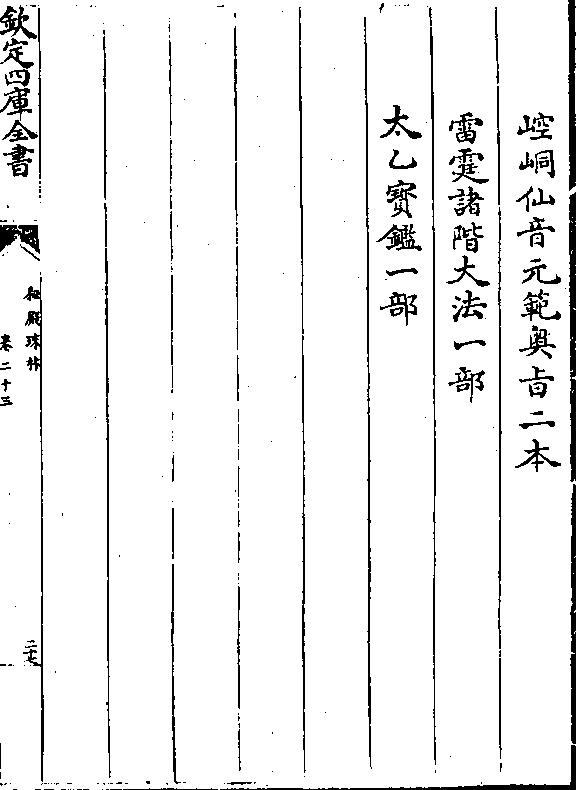 崆峒仙音元範奥㫖二本
雷霆諸階大法一部
太乙寳鑑一部
欽定四庫全書
秘殿珠林
卷二十三
二十七